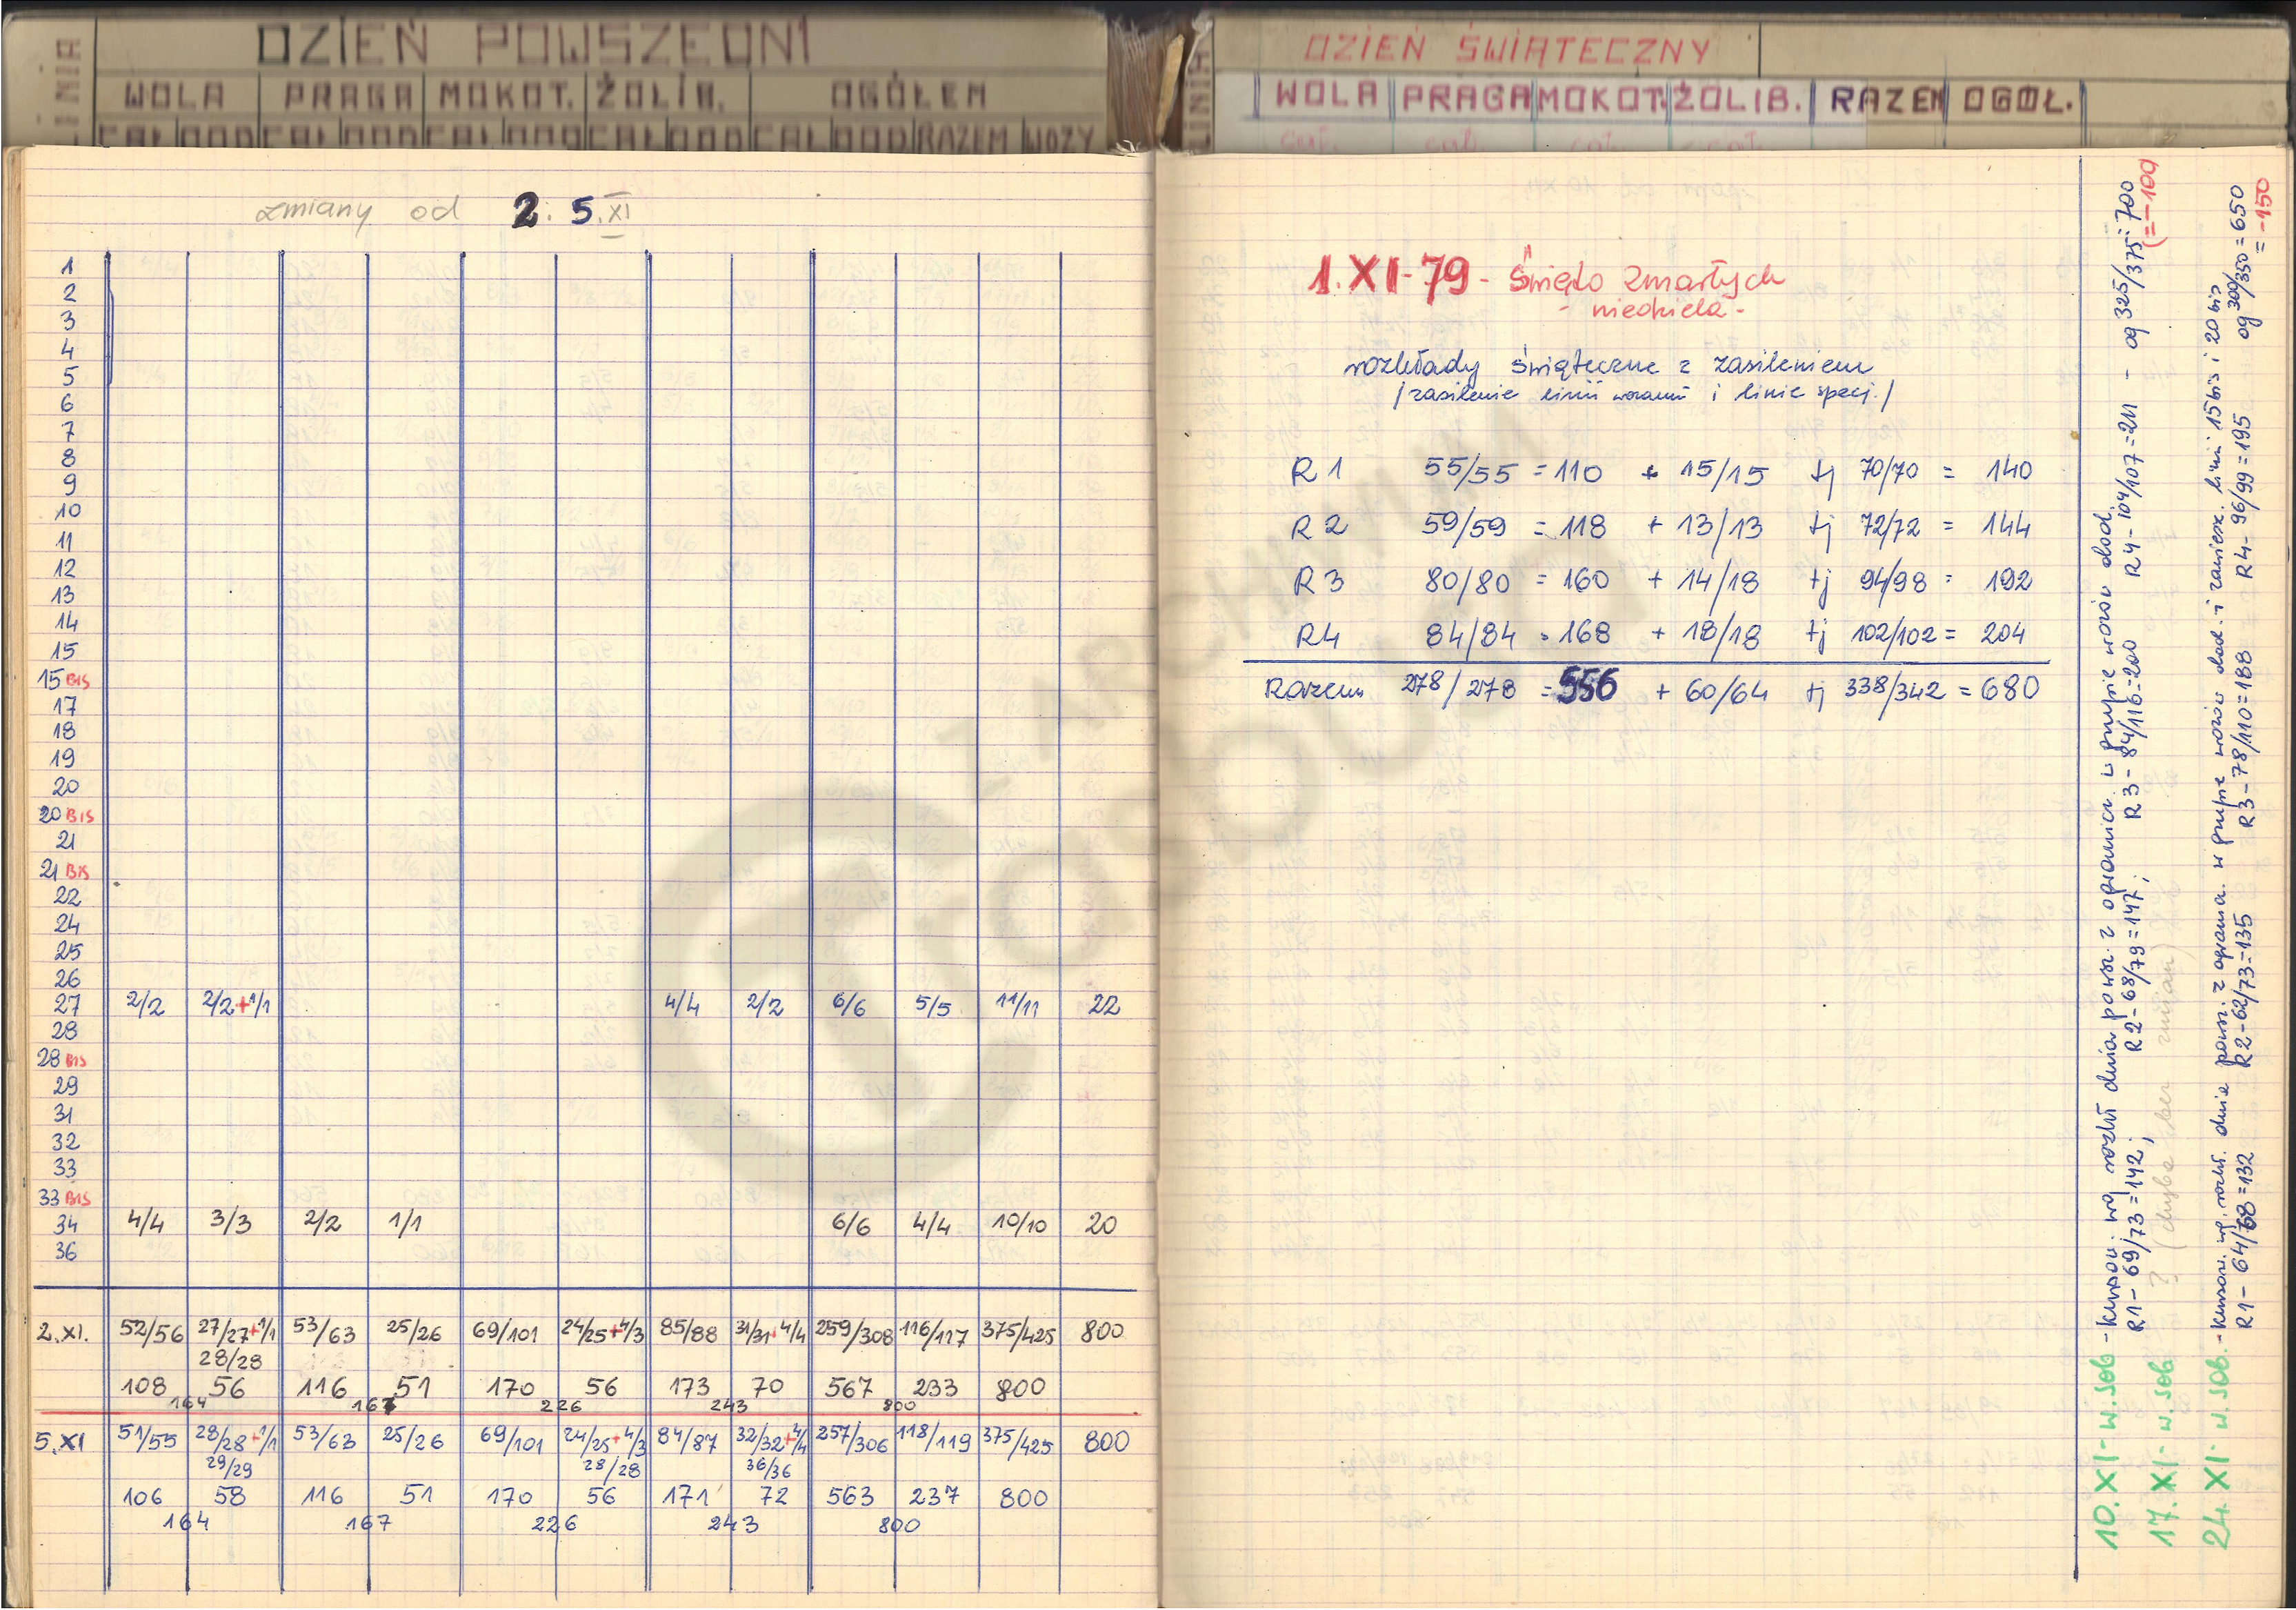 LINIA
DZIEŃ POWSZEDNI
WOLA PRAGA MOKOT. ŻOLIB. OGÓŁEM
CAŁ DOD CAŁ DOD CAŁ DOD CAŁ DOD CAŁ DOD RAZEM WOZY
zmiany od 2. 5.XI
1
2
3
4
5
6
7
8
9
10
11
12
13
14
15
15 BIS
17
18
19
20
20 BIS
21
21 BIS
22
24
25
26
27 2/2 2/2+1/1 4/4 2/2 6/6 5/5 11/11 22
28
28 BIS
29
31
32
33
33 BIS
34 4/4 3/3 2/2 1/1 6/6 4/4 10/10 20
36
2.XI. 52/56 27/27+1/1 53/63 25/26 69/101 24/25+4/3 85/88 31/31+4/4 259/308 116/117 375/425 800
28/28
108 56 116 51 170 56 173 70 567 233 800
164 167 226 243 800
5.XI 51/55 28/28+1/1 53/63 25/26 69/101 24/25+4/3 84/87 32/32+4/4 257/306 118/119 375/425 800
29/29 28/28 36/36
106 58 116 51 170 56 171 72 563 237 800
164 167 226 243 800
LINIA
DZIEŃ ŚWIĄTECZNY
WOLA PRAGA MOKOT. ŻOLIB. RAZEM OGÓŁ.
cał. cał. cał. cał.
1.XI-79 - Święto Zmarłych
- niedziela -
rozkłady świąteczne z zasileniem
/zasilenie linii wozami i linie specj./
R1 55/55 = 110 + 15/15 tj 70/70 = 140
R2 59/59 = 118 + 13/13 tj 72/72 = 144
R3 80/80 = 160 + 14/18 tj 94/98 = 192
R4 84/84 = 168 + 18/18 tj 102/102 = 204
Razem 278/278 = 556 + 60/64 tj 338/342 = 680
10.XI - w.sob - kursow. wg rozkł dnia powsz. z ogranicz. w grupie wozów dod.
R1 - 69/73 = 142; R2 - 68/79 = 147; R3 - 84/116 = 200 R4 - 104/107 = 211 - og 325/375 = 700
(= -100)
17.XI - w.sob ? (chyba bez zmian)
24.XI - w.sob. - kursow. wg. rozkł. dnia powsz. z ogranicz. w grupie wozów dod. i zawiesz. linii 15 bis i 20 bis
R1 - 64/68 = 132 R2 - 62/73 = 135 R3 - 78/110 = 188 R4 - 96/99 = 195 og 300/350 = 650
= -150
Z ARCHIWUM
TROBOLA